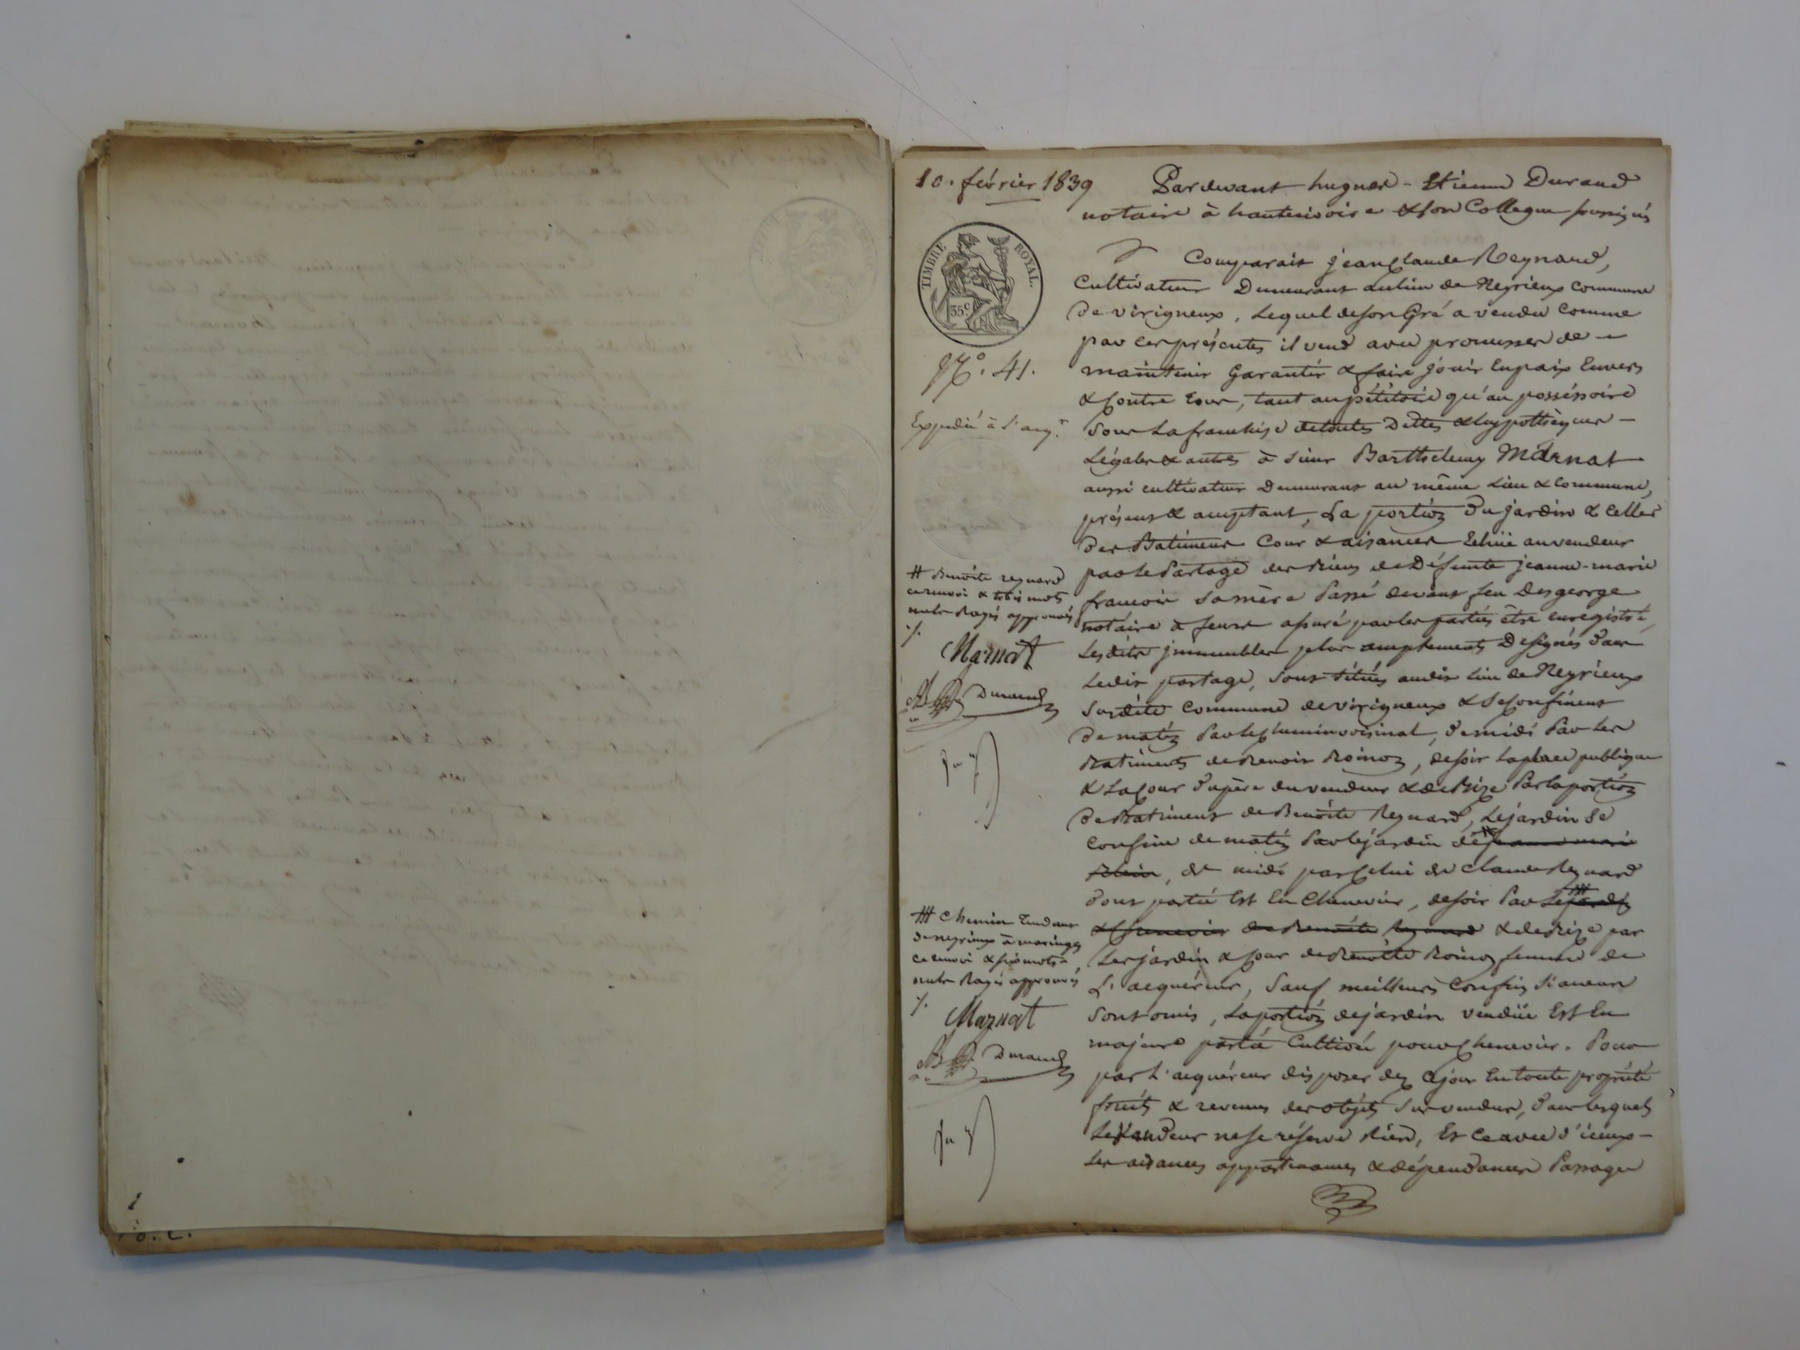 10. février 1839
Pardevant hugues - Etienne Durand
notaire à hauterivoire & son Collegue soussignés
TIMBRE ROYAL.
35c
No. 41.
Expedié à l'aqr.
Comparait jeanClaude Reynard,
Cultivateur Demeurant aulieu de Neyrieux commune
de virigneux, Lequel deson Gré a vendu comme
par ces présentes il vend avec promesses de
maintenir Garantir & faire jôuir Enpaix Envers
& Contre tous, tant aupétitoire qu'au posséssoire
Sous La franchise detoutes Dettes & hypothèques
Légales & autres à sieur Barthélemy Marnat
aussi cultivateur Demeurant au même Lieu & commune,
présent & aceptant, La portion du jardin & Celles
des Batiments Cour & aisances Echüe auvendeur
parle Partage des Biens de Défunte jeanne-marie
françois Samère Passé devant feu Desgeorge
notaire à feurs assuré parles parties être enregistré,
Lesdits jmmeubles plus amplements Désignés dans
Ledit partage, Sont Sitüés audit Lieu de Neyrieux
Susdite Commune devirigneux & Seconfinent
De matin Parle Chemin voisinal, demidi Par les
Batiments de Benoit Roinon, desoir Laplace publique
& LaCour Dupère duvendeur & deBize ParLaportion
de Batiment de Benoîte Reynard, Lejardin Se
Confine de matin Parlejardin de # jeanne marie
, de midi parCelui de Claude Reynard
dont partie Est En Chenevier, desoir Par Le ## jardin
& Chenevier de Benoîte Reynard & deBize par
Les jardin & Cour de Benoîte Roinon femme de
L'acquéreur, Sauf meilleurs Confins Siaucuns
Sont omis, Laportion dejardin vendüe Est En
majeure partie Cultivée pour Chenevier. Pour
par L'acquéreur disposer dez Cejour Entoute proprieté
fruits & revenus des objets Susvendus, dans lesquels
Levandeur nese réserve Rien, Et ce avec d'iceux
Les aisances appartenances & dépendances Passages
# Benoîte reynard
cerenvoi & trois mots
nuls Rayés approuvés
Marnat
Durand
## Chemin Tendant
de neyrieux à maringes
ce renvoi & six mots
nuls Rayés approuvés
Marnat
Durand